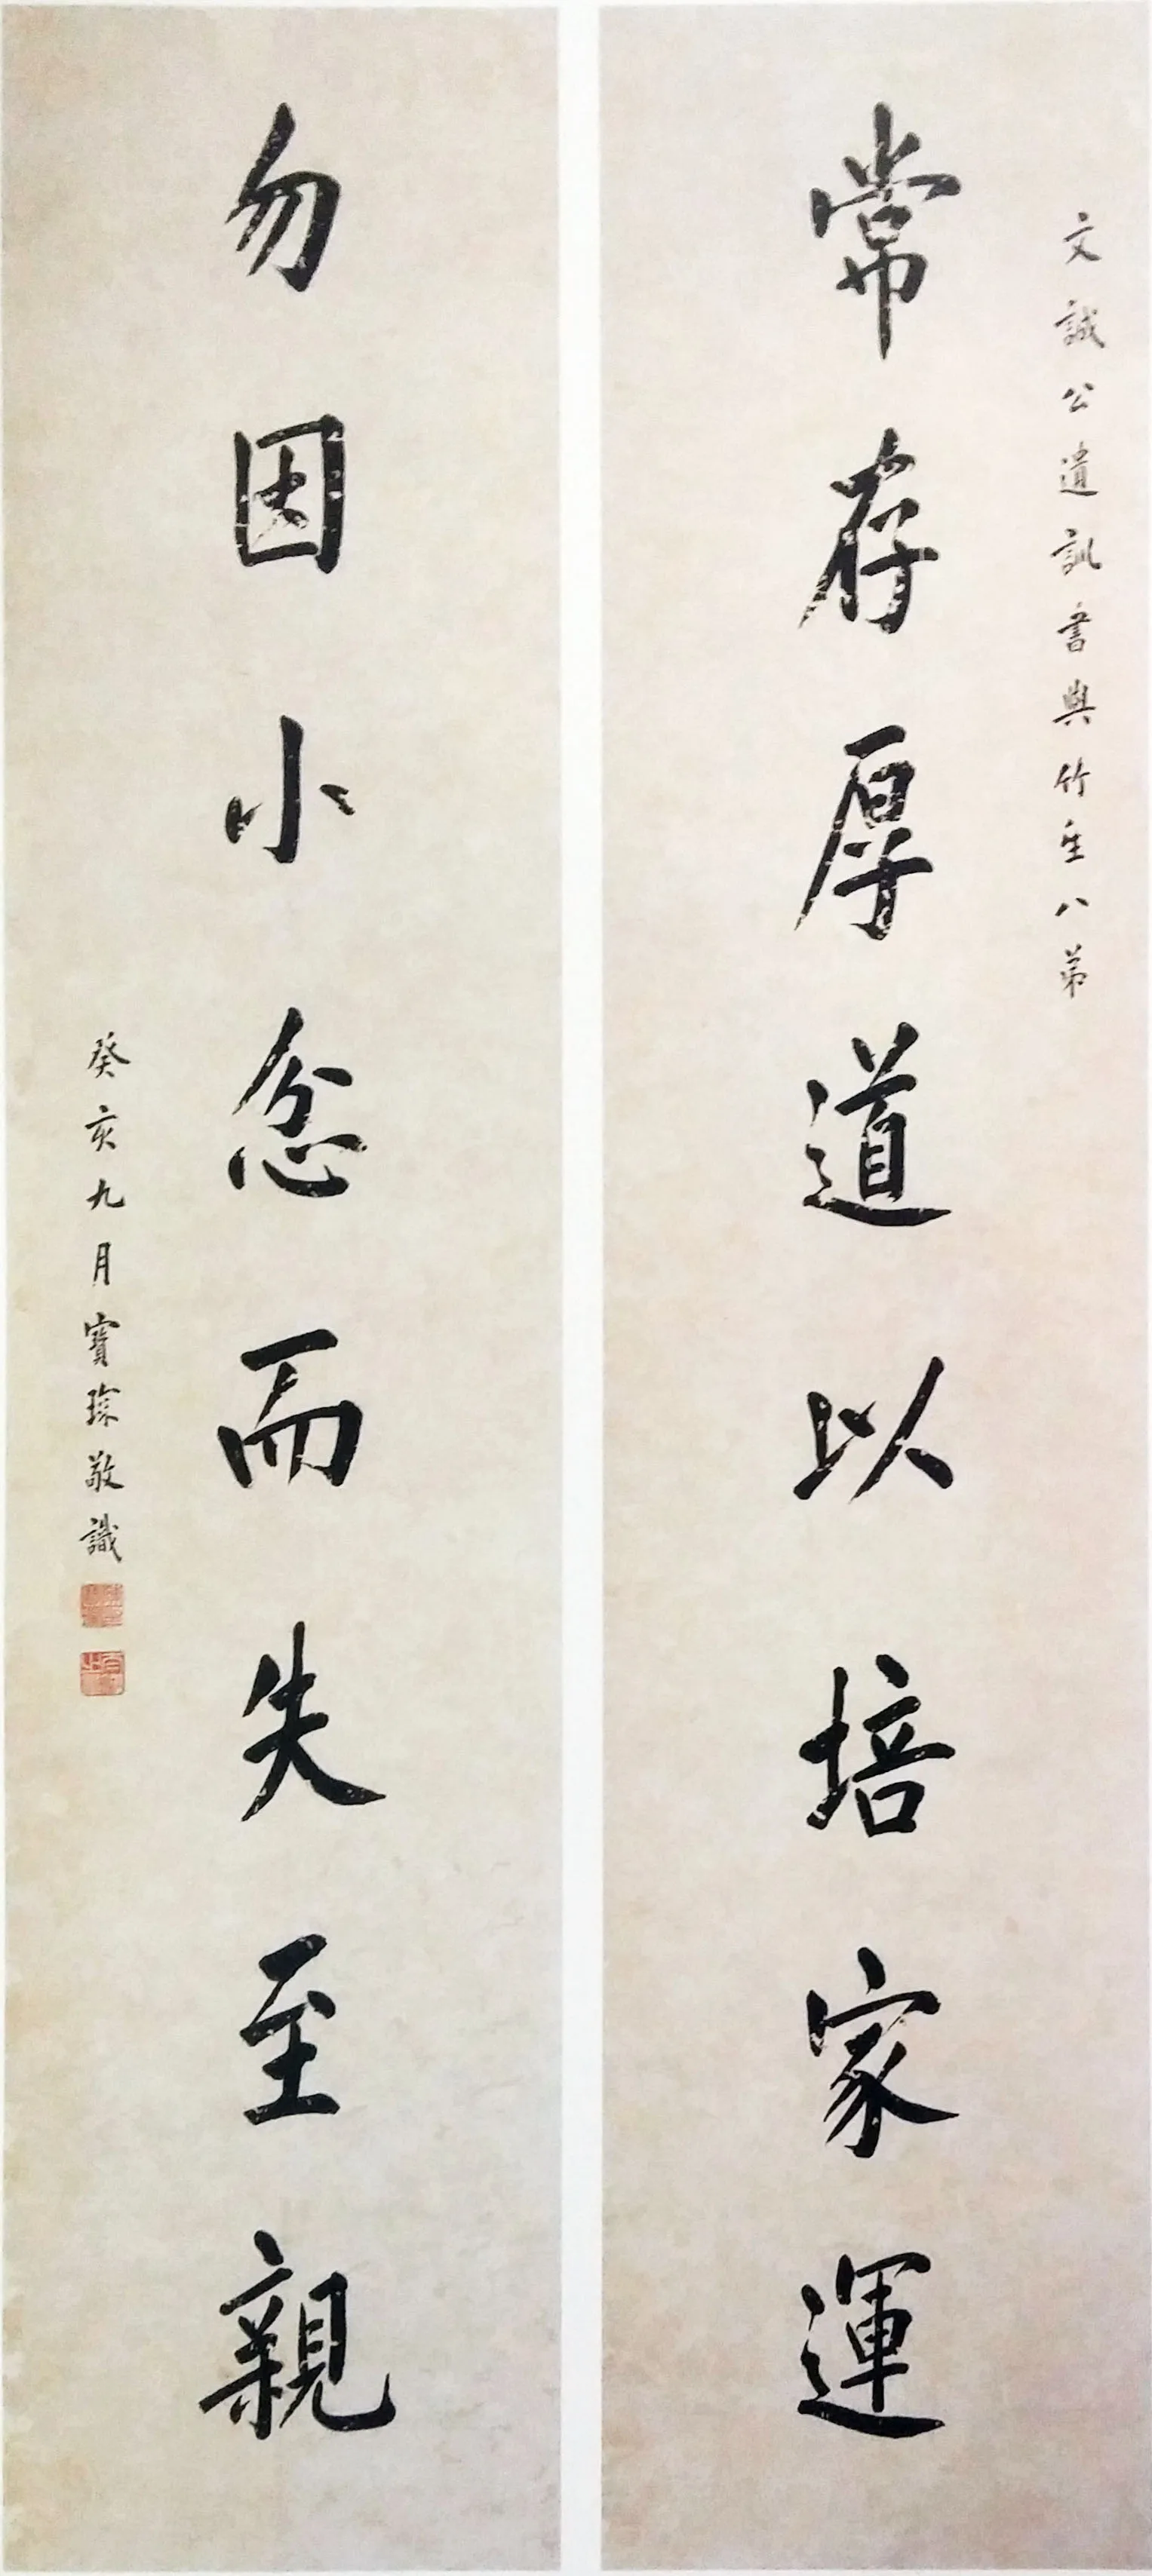 文誠公遺訓書與竹生八弟
常存厚道以培家運
勿因小忿而失至親
癸亥九月寶琛敬識